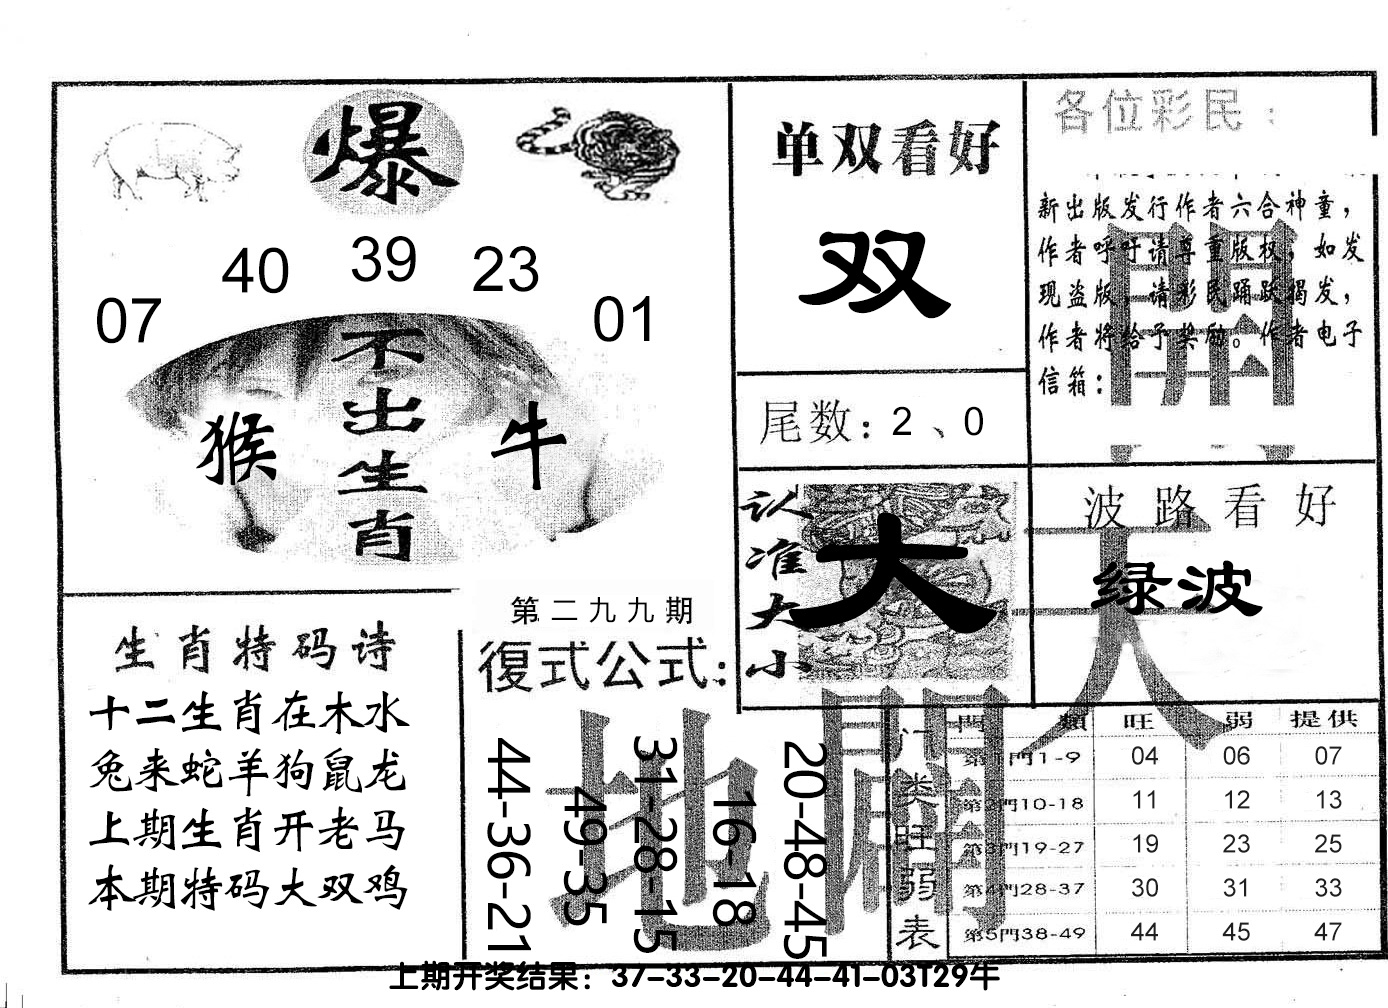 爆
07 40 39 23 01
不出生肖
猴 牛
单双看好
双
尾数：2、0
各位彩民：
新出版发行作者六合神童，
作者呼吁请尊重版权，如发
现盗版，请彩民踊跃揭发，
作者将给予奖励。作者电子
信箱：
開
认准大小
大
波路看好
绿波
天
生肖特码诗
十二生肖在木水
兔来蛇羊狗鼠龙
上期生肖开老马
本期特码大双鸡
第二九九期
復式公式：
44-36-21
49-35
31-28-15
16-18
20-48-45
地
门类旺弱表
門類 旺 弱 提供
第1門1-9 04 06 07
第2門10-18 11 12 13
第3門19-27 19 23 25
第4門28-37 30 31 33
第5門38-49 44 45 47
上期开奖结果：37-33-20-44-41-03T29牛